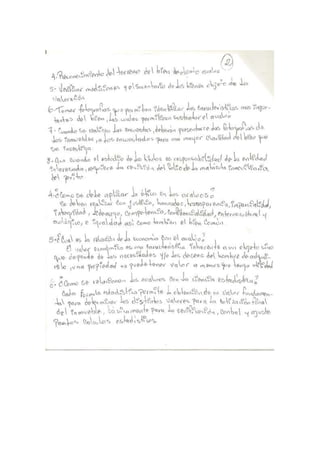 2
4- Reconocimiento del terreno del bien de dicho avaluo
5- Verificar mediciones y el inventario de los bienes objeto de la
valoración
6- Tomar fotografías que permitan identificar las características más impor-
tantes del bien, las cuales permitiran sustentar el avalúo
7- Cuando se realiza las encuestas, deberán presentarse las fotografías de
los inmuebles, a los encuestados para una mayor claridad del bien que
se investiga
8- Aun cuando el estudio de los títulos es responsabilidad de la entidad
interesada, requiere la revisión del título de la matrícula inmobiliaria
del predio
4- ¿Como se debe aplicar la ética en los avalúos?
Se deben realizar con justicia, honradez, transparencia, imparcialidad,
integridad, liderazgo, competencia, confidencialidad, intelectual y
ecológico, e igualdad así como tambien el bien común.
5- ¿Cual es la relación de la economía con el avalúo?
El valor económico es una característica inherente a un objeto sino
que depende de las necesidades y/o los deseos del hombre de adqui-
rirlo y una propiedad no puede tener valor a menos que tenga utilidad
6- ¿Como se relacionan los avalúos con la ciencia estadística?
Cada formula estadística permite la obtención de un valor fundamen-
tal para determinar los distintos valores para la tasación final
del inmueble, básicamente para la verificación, control y ajuste
calculos estadísticos